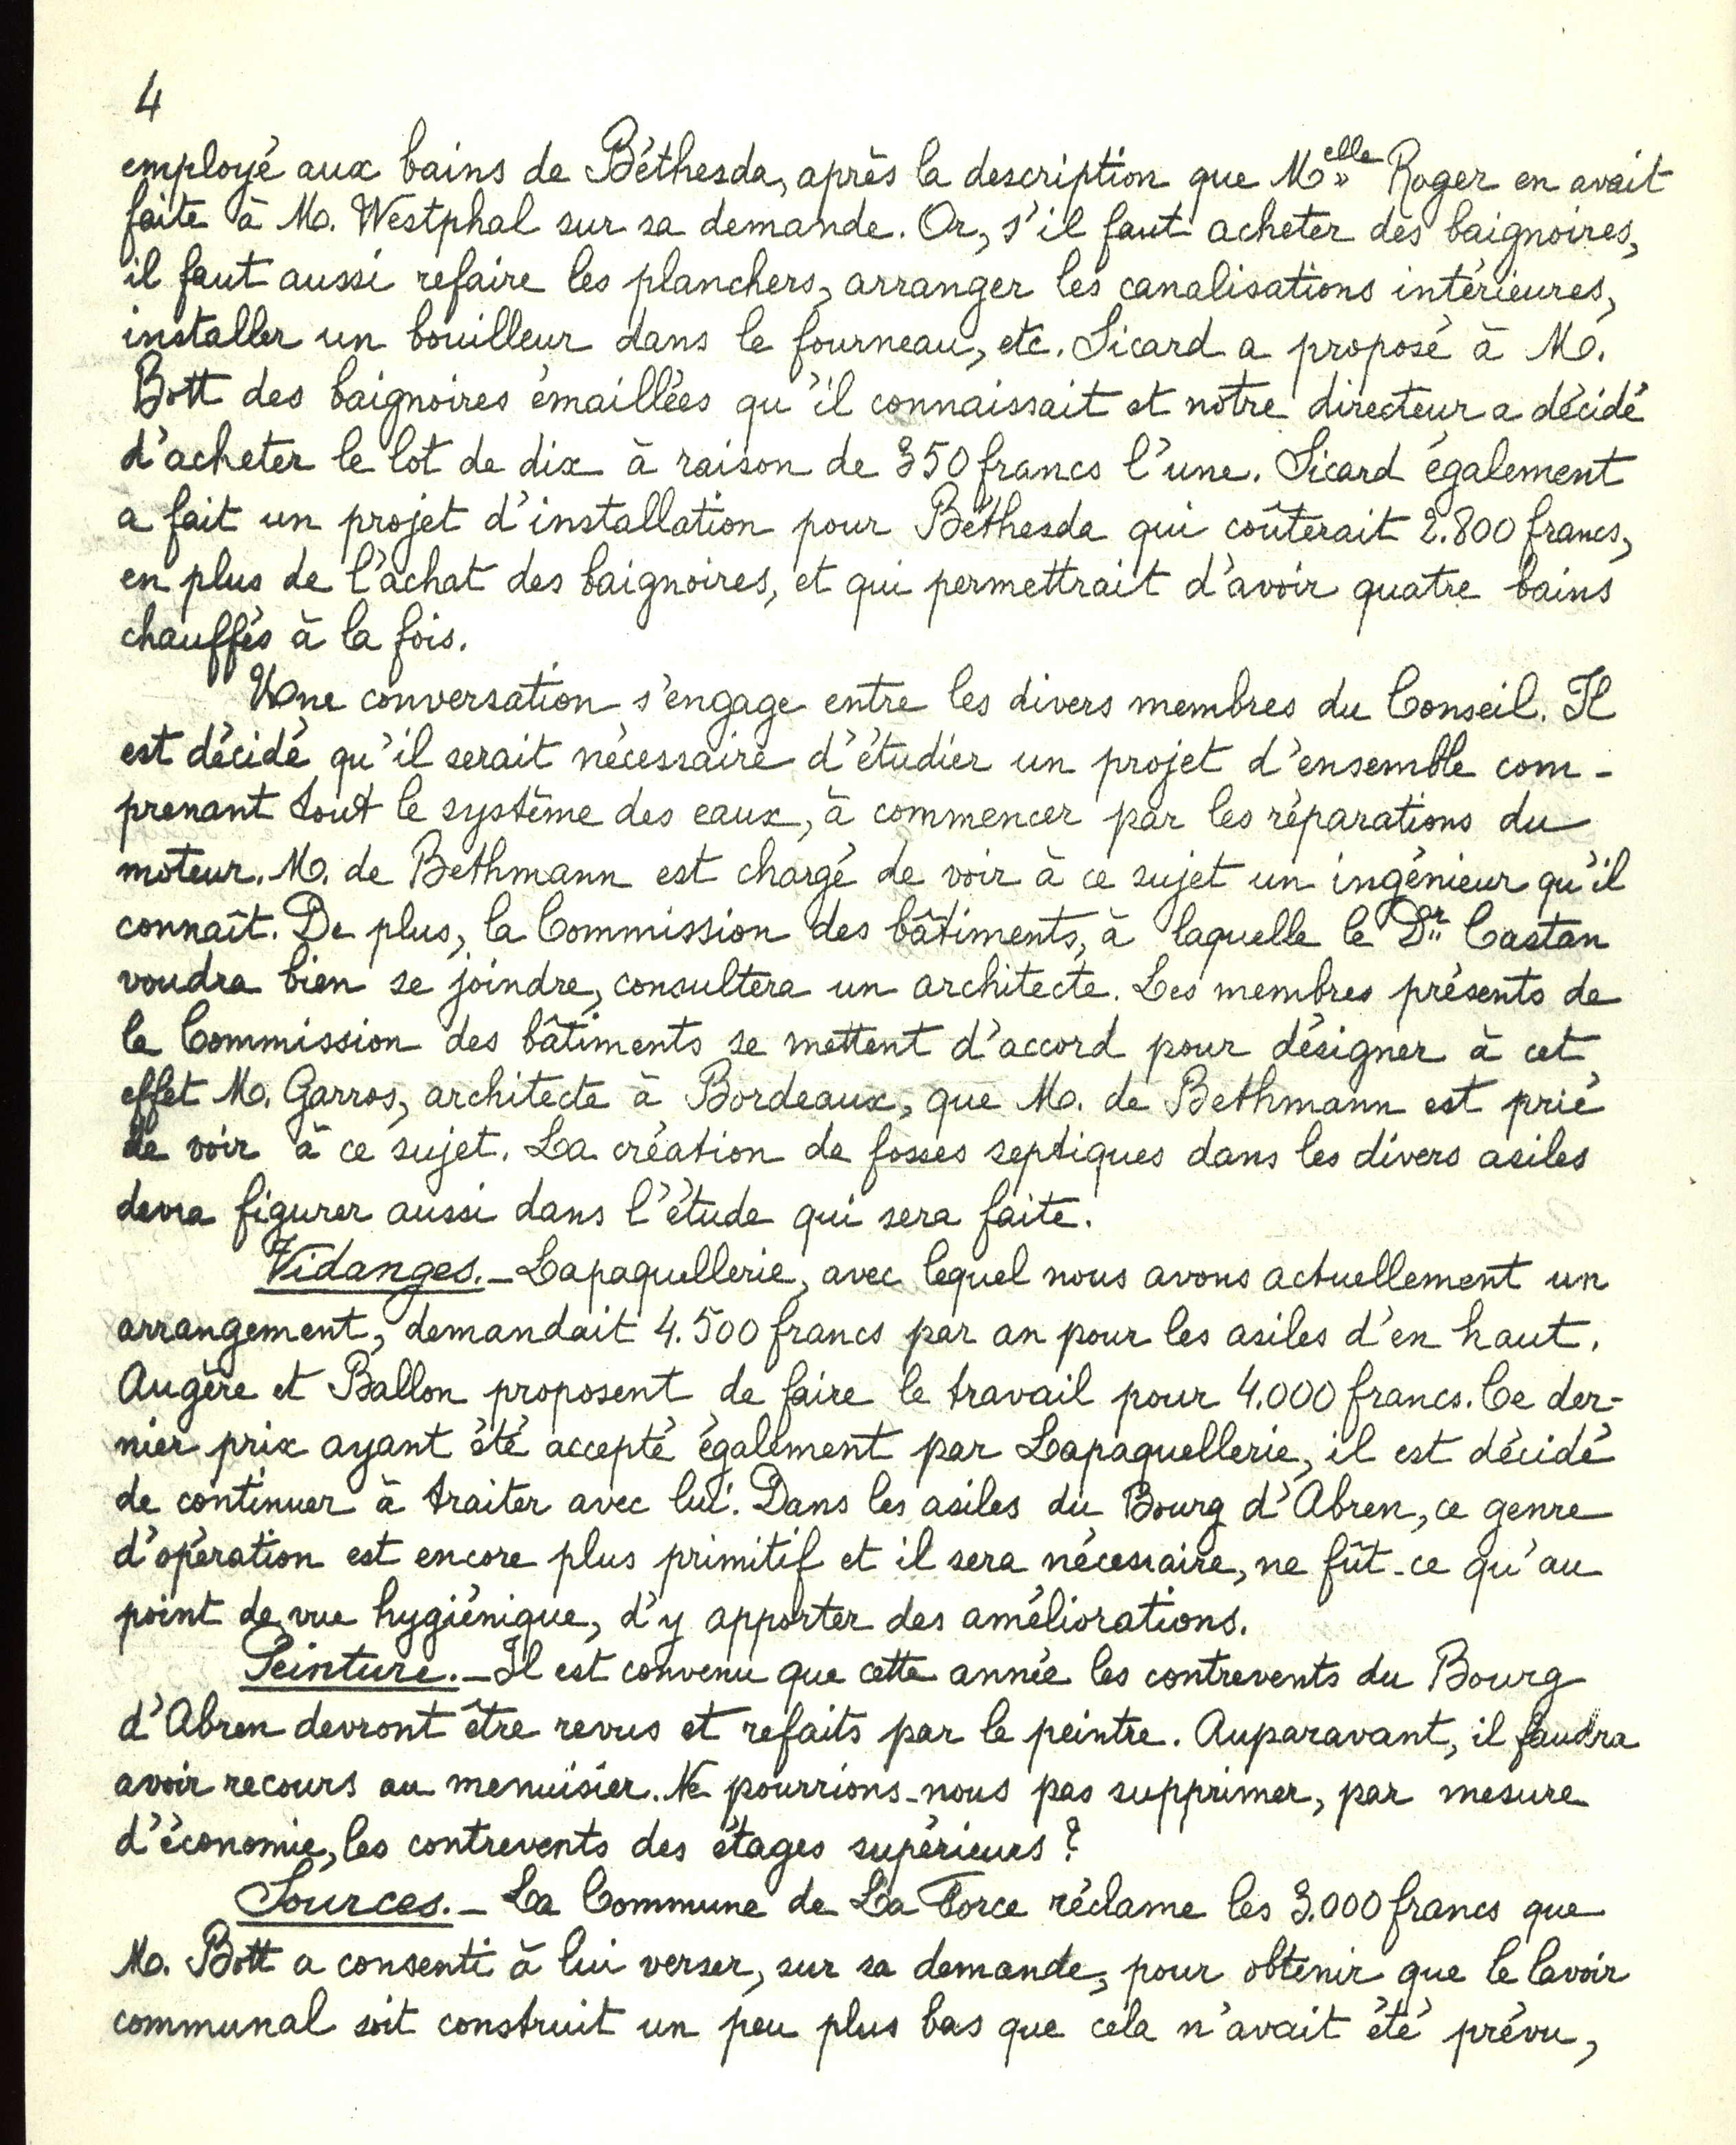 4
employé aux bains de Béthesda, après la description que Melle Roger en avait
faite à M. Westphal sur sa demande. Or, s'il faut acheter des baignoires,
il faut aussi refaire les planchers, arranger les canalisations intérieures,
installer un bouilleur dans le fourneau, etc. Sicard a proposé à M.
Bott des baignoires émaillées qu'il connaissait et notre directeur a décidé
d'acheter le lot de dix à raison de 350 francs l'une. Sicard également
a fait un projet d'installation pour Béthesda qui coûterait 2.800 francs,
en plus de l'achat des baignoires, et qui permettrait d'avoir quatre bains
chauffés à la fois.
Une conversation s'engage entre les divers membres du Conseil. Il
est décidé qu'il serait nécessaire d'étudier un projet d'ensemble com-
prenant tout le système des eaux, à commencer par les réparations du
moteur. M. de Bethmann est chargé de voir à ce sujet un ingénieur qu'il
connaît. De plus, la Commission des bâtiments, à laquelle le Dr Castan
voudra bien se joindre, consultera un architecte. Les membres présents de
la Commission des bâtiments se mettent d'accord pour désigner à cet
effet M. Garros, architecte à Bordeaux, que M. de Bethmann est prié
de voir à ce sujet. La création de fosses septiques dans les divers asiles
devra figurer aussi dans l'étude qui sera faite.
Vidanges. - Lapaquellerie, avec lequel nous avons actuellement un
arrangement, demandait 4.500 francs par an pour les asiles d'en haut.
Augère et Ballon proposent de faire le travail pour 4.000 francs. Ce der-
nier prix ayant été accepté également par Lapaquellerie, il est décidé
de continuer à traiter avec lui. Dans les asiles du Bourg d'Abren, ce genre
d'opération est encore plus primitif et il sera nécessaire, ne fût-ce qu'au
point de vue hygiénique, d'y apporter des améliorations.
Peinture. - Il est convenu que cette année les contrevents du Bourg
d'Abren devront être revus et refaits par le peintre. Auparavant, il faudra
avoir recours au menuisier. Ne pourrions-nous pas supprimer, par mesure
d'économie, les contrevents des étages supérieurs ?
Sources. - La Commune de La Force réclame les 3.000 francs que
M. Bott a consenti à lui verser, sur sa demande, pour obtenir que le lavoir
communal soit construit un peu plus bas que cela n'avait été prévu,